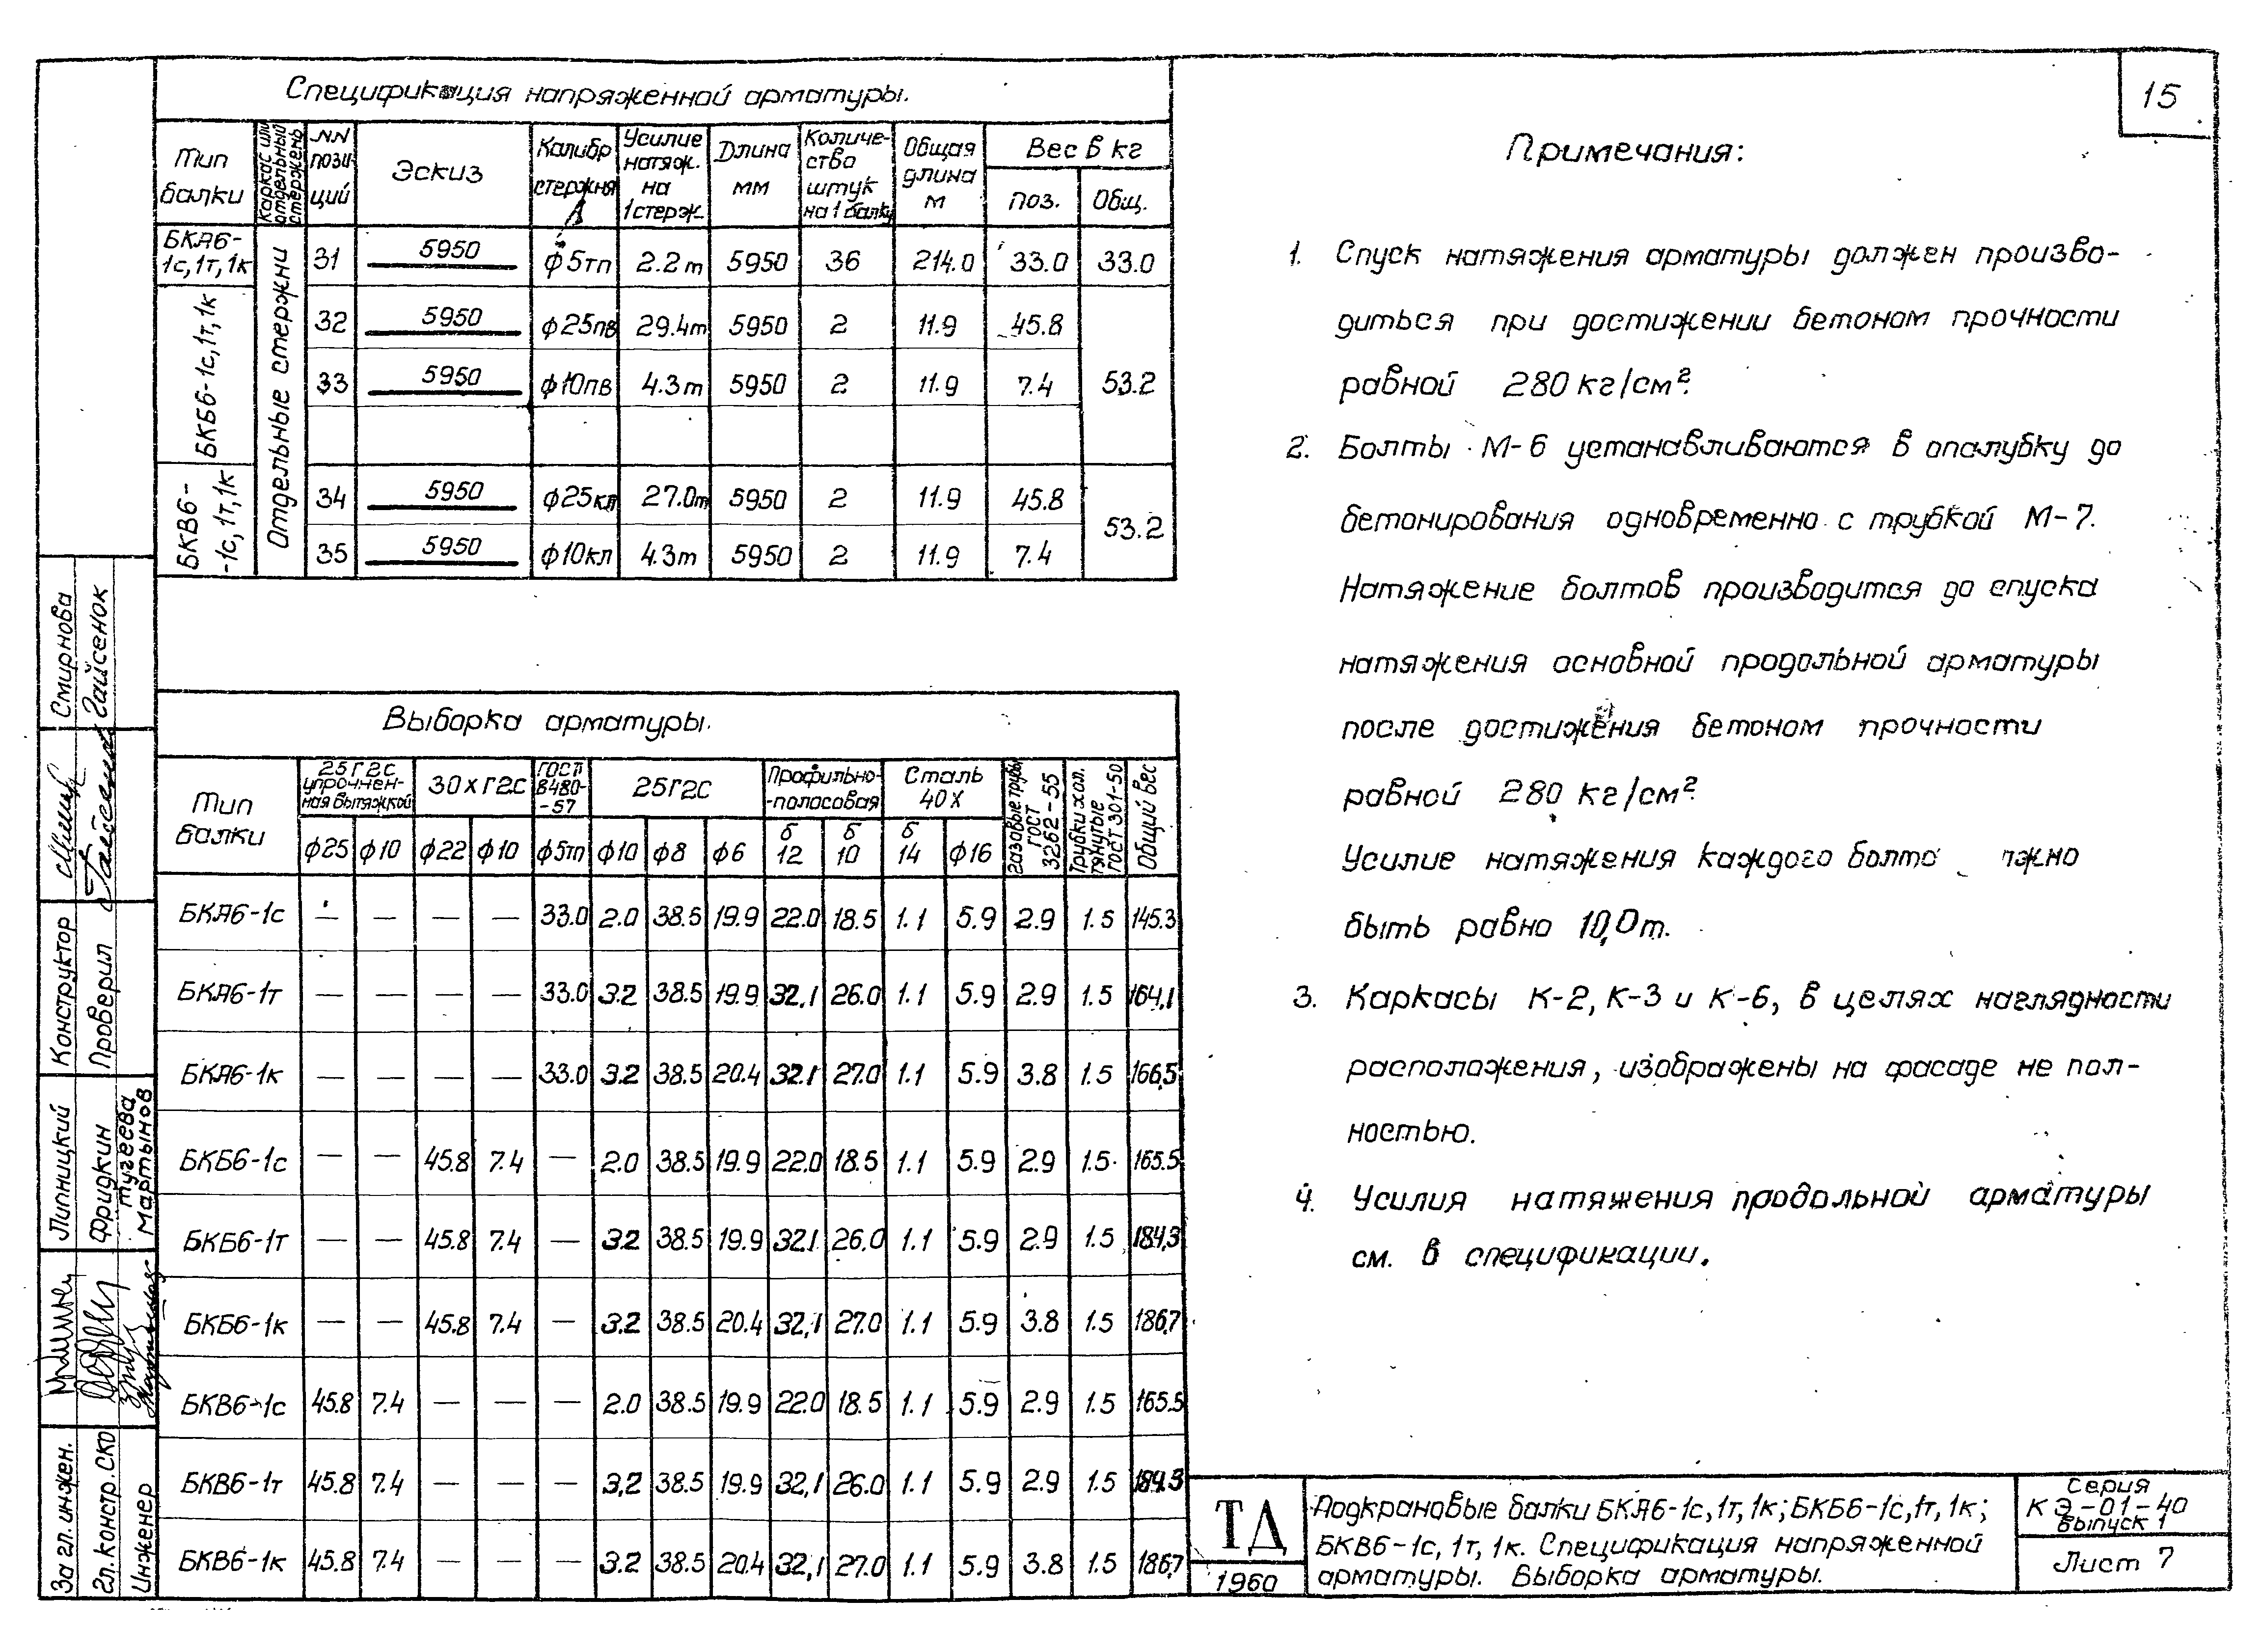 Спецификация напряженной арматуры.
Тип балки | Каркас или отдельный стержень | NN пози-ций | Эскиз | Калибр стержня | Усилие натяж. на 1 стерж. | Длина мм | Количе-ство штук на 1 балку | Общая длина м | Вес в кг
поз. | Общ.
БКА6-1с, 1т, 1к | Отдельные стержни | 31 | 5950 | ф5тп | 2.2т | 5950 | 36 | 214.0 | 33.0 | 33.0
БКБ6-1с, 1т, 1к | 32 | 5950 | ф25пв | 29.4т | 5950 | 2 | 11.9 | 45.8
33 | 5950 | ф10пв | 4.3т | 5950 | 2 | 11.9 | 7.4 | 53.2
БКВ6--1с, 1т, 1к | 34 | 5950 | ф25кл | 27.0т | 5950 | 2 | 11.9 | 45.8
35 | 5950 | ф10кл | 4.3т | 5950 | 2 | 11.9 | 7.4 | 53.2
Выборка арматуры.
Тип балки | 25Г2С упрочнен-ная вытяжкой | 30хГ2С | ГОСТ 8480--57 | 25Г2С | Профильно--полосовая | Сталь 40Х | Газовые трубы ГОСТ 3262-55 | Трубки хол. тянутые ГОСТ 301-50 | Общий вес
ф25 | ф10 | ф22 | ф10 | ф5тп | ф10 | ф8 | ф6 | б 12 | б 10 | б 14 | ф16
БКА6-1с | — | — | — | — | 33.0 | 2.0 | 38.5 | 19.9 | 22.0 | 18.5 | 1.1 | 5.9 | 2.9 | 1.5 | 145.3
БКА6-1т | — | — | — | — | 33.0 | 3.2 | 38.5 | 19.9 | 32.1 | 26.0 | 1.1 | 5.9 | 2.9 | 1.5 | 164,1
БКА6-1к | — | — | — | — | 33.0 | 3.2 | 38.5 | 20.4 | 32.1 | 27.0 | 1.1 | 5.9 | 3.8 | 1.5 | 166,5
БКБ6-1с | — | — | 45.8 | 7.4 | — | 2.0 | 38.5 | 19.9 | 22.0 | 18.5 | 1.1 | 5.9 | 2.9 | 1.5 | 165.5
БКБ6-1т | — | — | 45.8 | 7.4 | — | 3.2 | 38.5 | 19.9 | 32.1 | 26.0 | 1.1 | 5.9 | 2.9 | 1.5 | 184,3
БКБ6-1к | — | — | 45.8 | 7.4 | — | 3.2 | 38.5 | 20.4 | 32,1 | 27.0 | 1.1 | 5.9 | 3.8 | 1.5 | 186,7
БКВ6-1с | 45.8 | 7.4 | — | — | — | 2.0 | 38.5 | 19.9 | 22.0 | 18.5 | 1.1 | 5.9 | 2.9 | 1.5 | 165.5
БКВ6-1т | 45.8 | 7.4 | — | — | — | 3,2 | 38.5 | 19.9 | 32,1 | 26.0 | 1.1 | 5.9 | 2.9 | 1.5 | 184.3
БКВ6-1к | 45.8 | 7.4 | — | — | — | 3.2 | 38.5 | 20.4 | 32,1 | 27.0 | 1.1 | 5.9 | 3.8 | 1.5 | 186,7
15
Примечания:
1. Спуск натяжения арматуры должен произво-
диться при достижении бетоном прочности
равной 280 кг/см².
2. Болты М-6 устанавливаются в опалубку до
бетонирования одновременно с трубкой М-7.
Натяжение болтов производится до спуска
натяжения основной продольной арматуры
после достижения бетоном прочности
равной 280 кг/см².
Усилие натяжения каждого болта жно
быть равно 10,0т.
3. Каркасы К-2, К-3 и К-6, в целях наглядности
расположения, изображены на фасаде не пол-
ностью.
4. Усилия натяжения продольной арматуры
см. в спецификации.
ТД
1960
Подкрановые балки БКА6-1с, 1т, 1к; БКБ6-1с, 1т, 1к;
БКВ6-1с, 1т, 1к. Спецификация напряженной
арматуры. Выборка арматуры.
Серия
КЭ-01-40
Выпуск 1
Лист 7
За гл. инжен. Липницкий
Гл. констр. СКО Фридкин
Инженер Тугеева
Мартынов
Конструктор Смирнова
Проверил Гайсенок